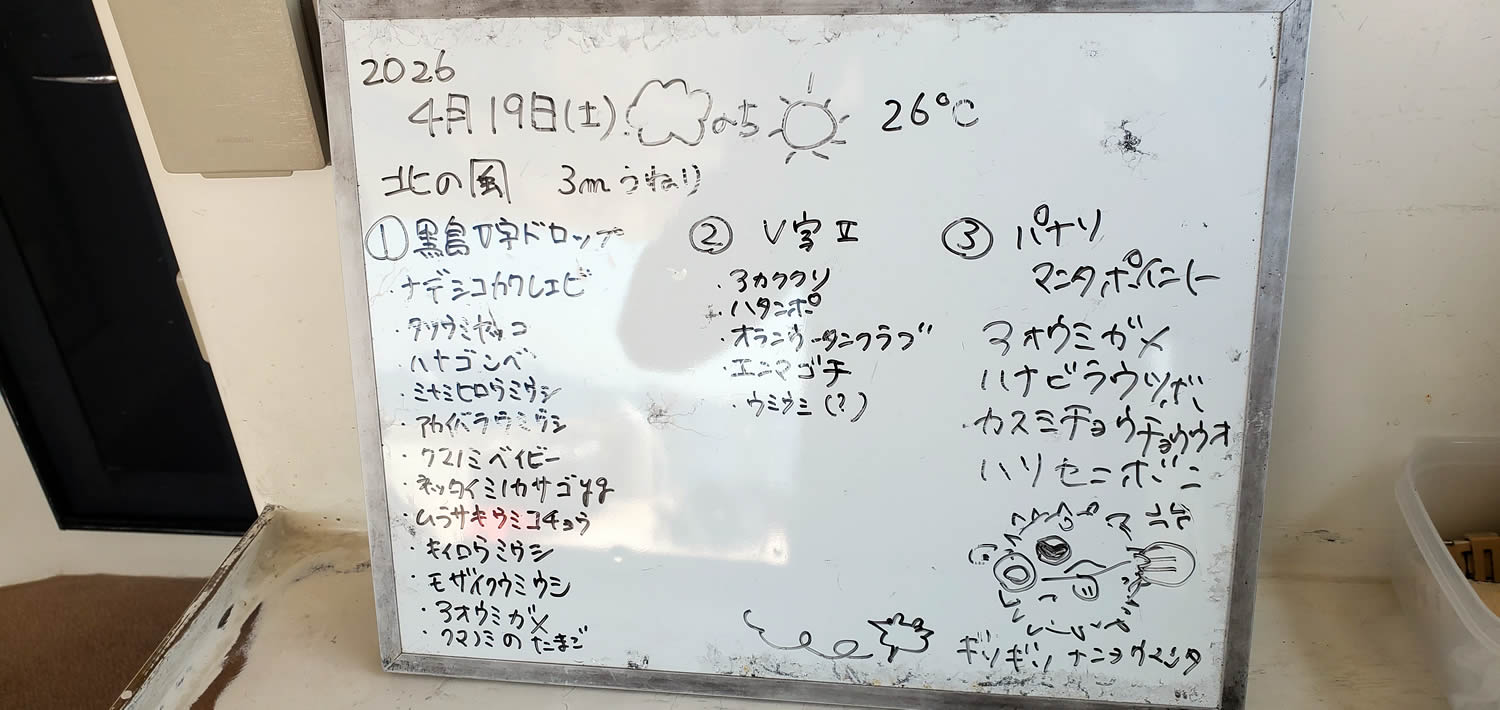 2026
4月19日(土) のち 26℃
北の風 3mうねり
① 黒島V字ドロップ
ナデシコカクレエビ
・タツウミヤッコ
・ハナゴンベ
・ミナミヒロウミウシ
・アカイバラウミウシ
・クマノミベイビー
・ネッタイミノカサゴyg
・ムラサキウミコチョウ
・キイロウミウシ
・モザイクウミウシ
・アオウミガメ
・クマノミのたまご
② V字Ⅱ
・アカククリ
・ハタンポ
・オランウータンクラブ
・エンマゴチ
・ウミウシ(?)
③ パナリ
マンタポイント
アオウミガメ
ハナビラウツボ
・カスミチョウチョウウオ
ハリセンボン
ギリギリナンヨウマンタ